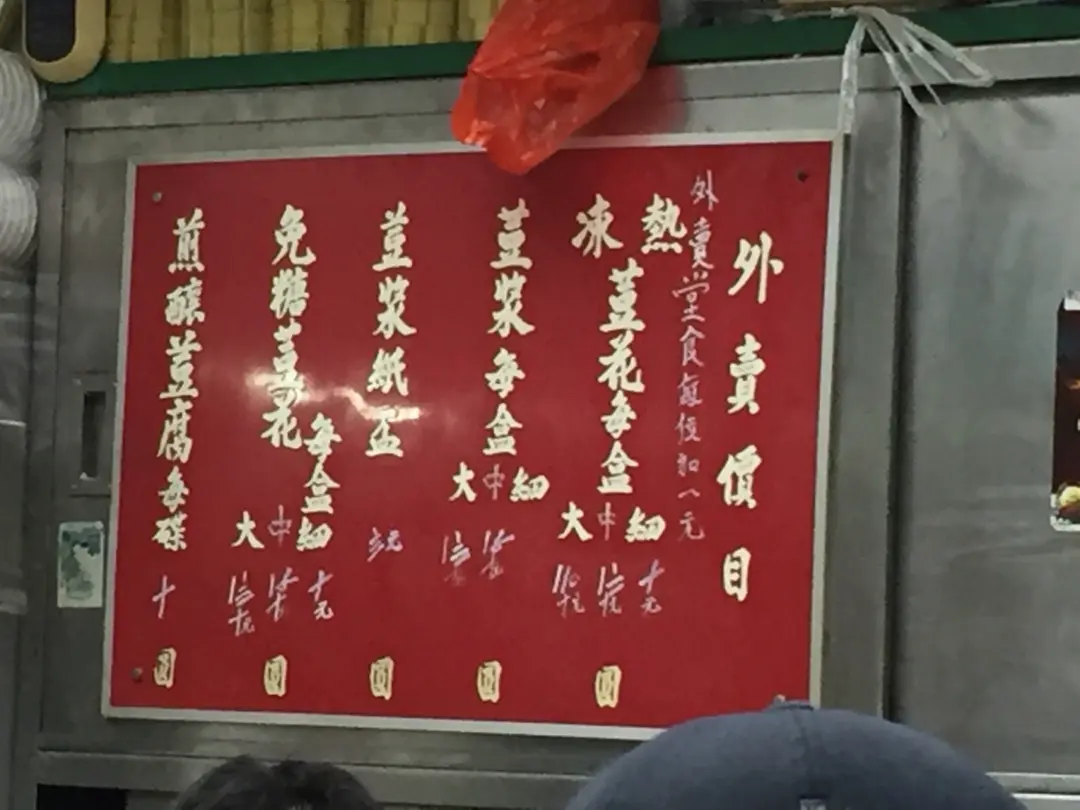 外賣價目
外賣堂食
加一元
熱凍荳花每盒
細中大
十元
圓
荳漿每盒
細中大
圓
荳漿紙盃
圓
免糖荳花每盒
細中大
十元
圓
煎釀荳腐每碟
十
圓